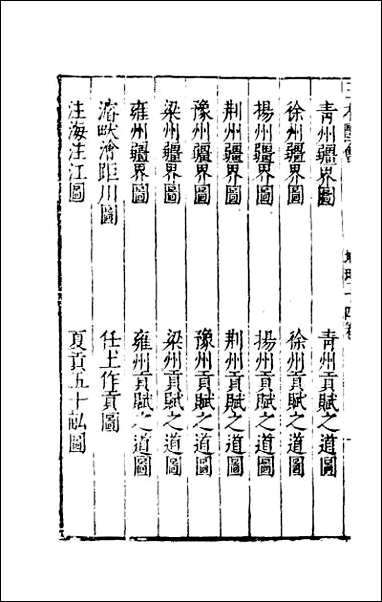 青州疆界圖　青州貢賦之道圖
徐州疆界圖　徐州貢賦之道圖
揚州疆界圖　揚州貢賦之道圖
荆州疆界圖　荆州貢賦之道圖
豫州疆界圖　豫州貢賦之道圖
梁州疆界圖　梁州貢賦之道圖
雍州疆界圖　雍州貢賦之道圖
濬畎澮距川圖　任土作貢圖
注海注江圖　夏貢五十畝圖